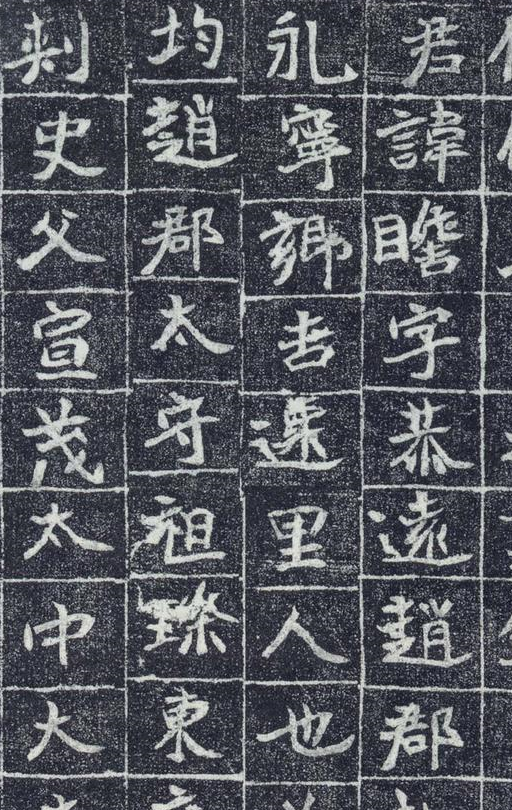 君諱瞻字恭遠趙郡
永寧鄉吉里人也
均趙郡太守祖璨東
刺史父宣茂太中大